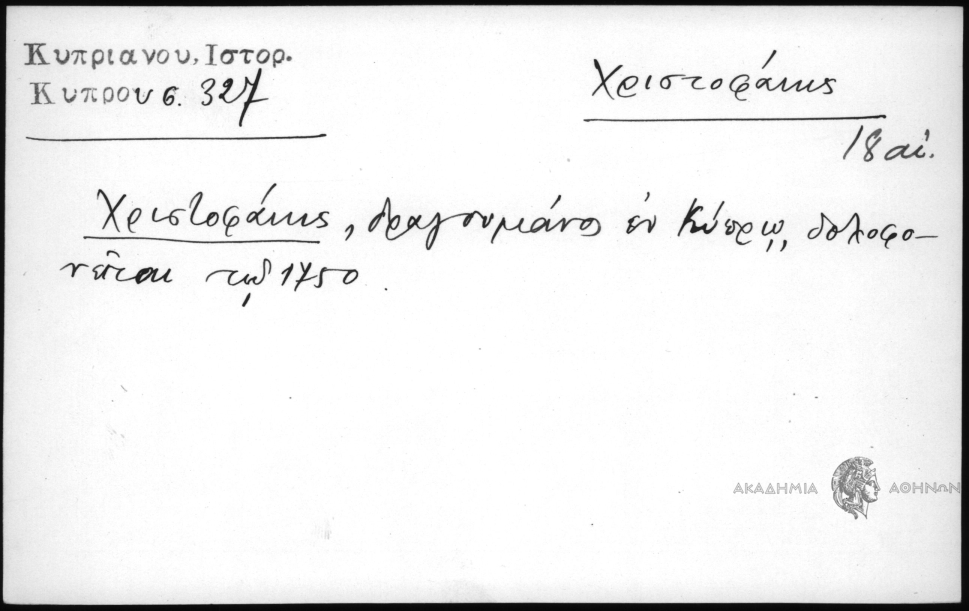 Κυπριανου, Ιστορ.
Κυπρου σ. 327
Χριστοφάκης
18 αἰ.
Χριστοφάκης, δραγουμάνος ἐν Κύπρῳ, δολοφο-
νεῖται τῷ 1750.
ΑΚΑΔΗΜΙΑ ΑΘΗΝΩΝ